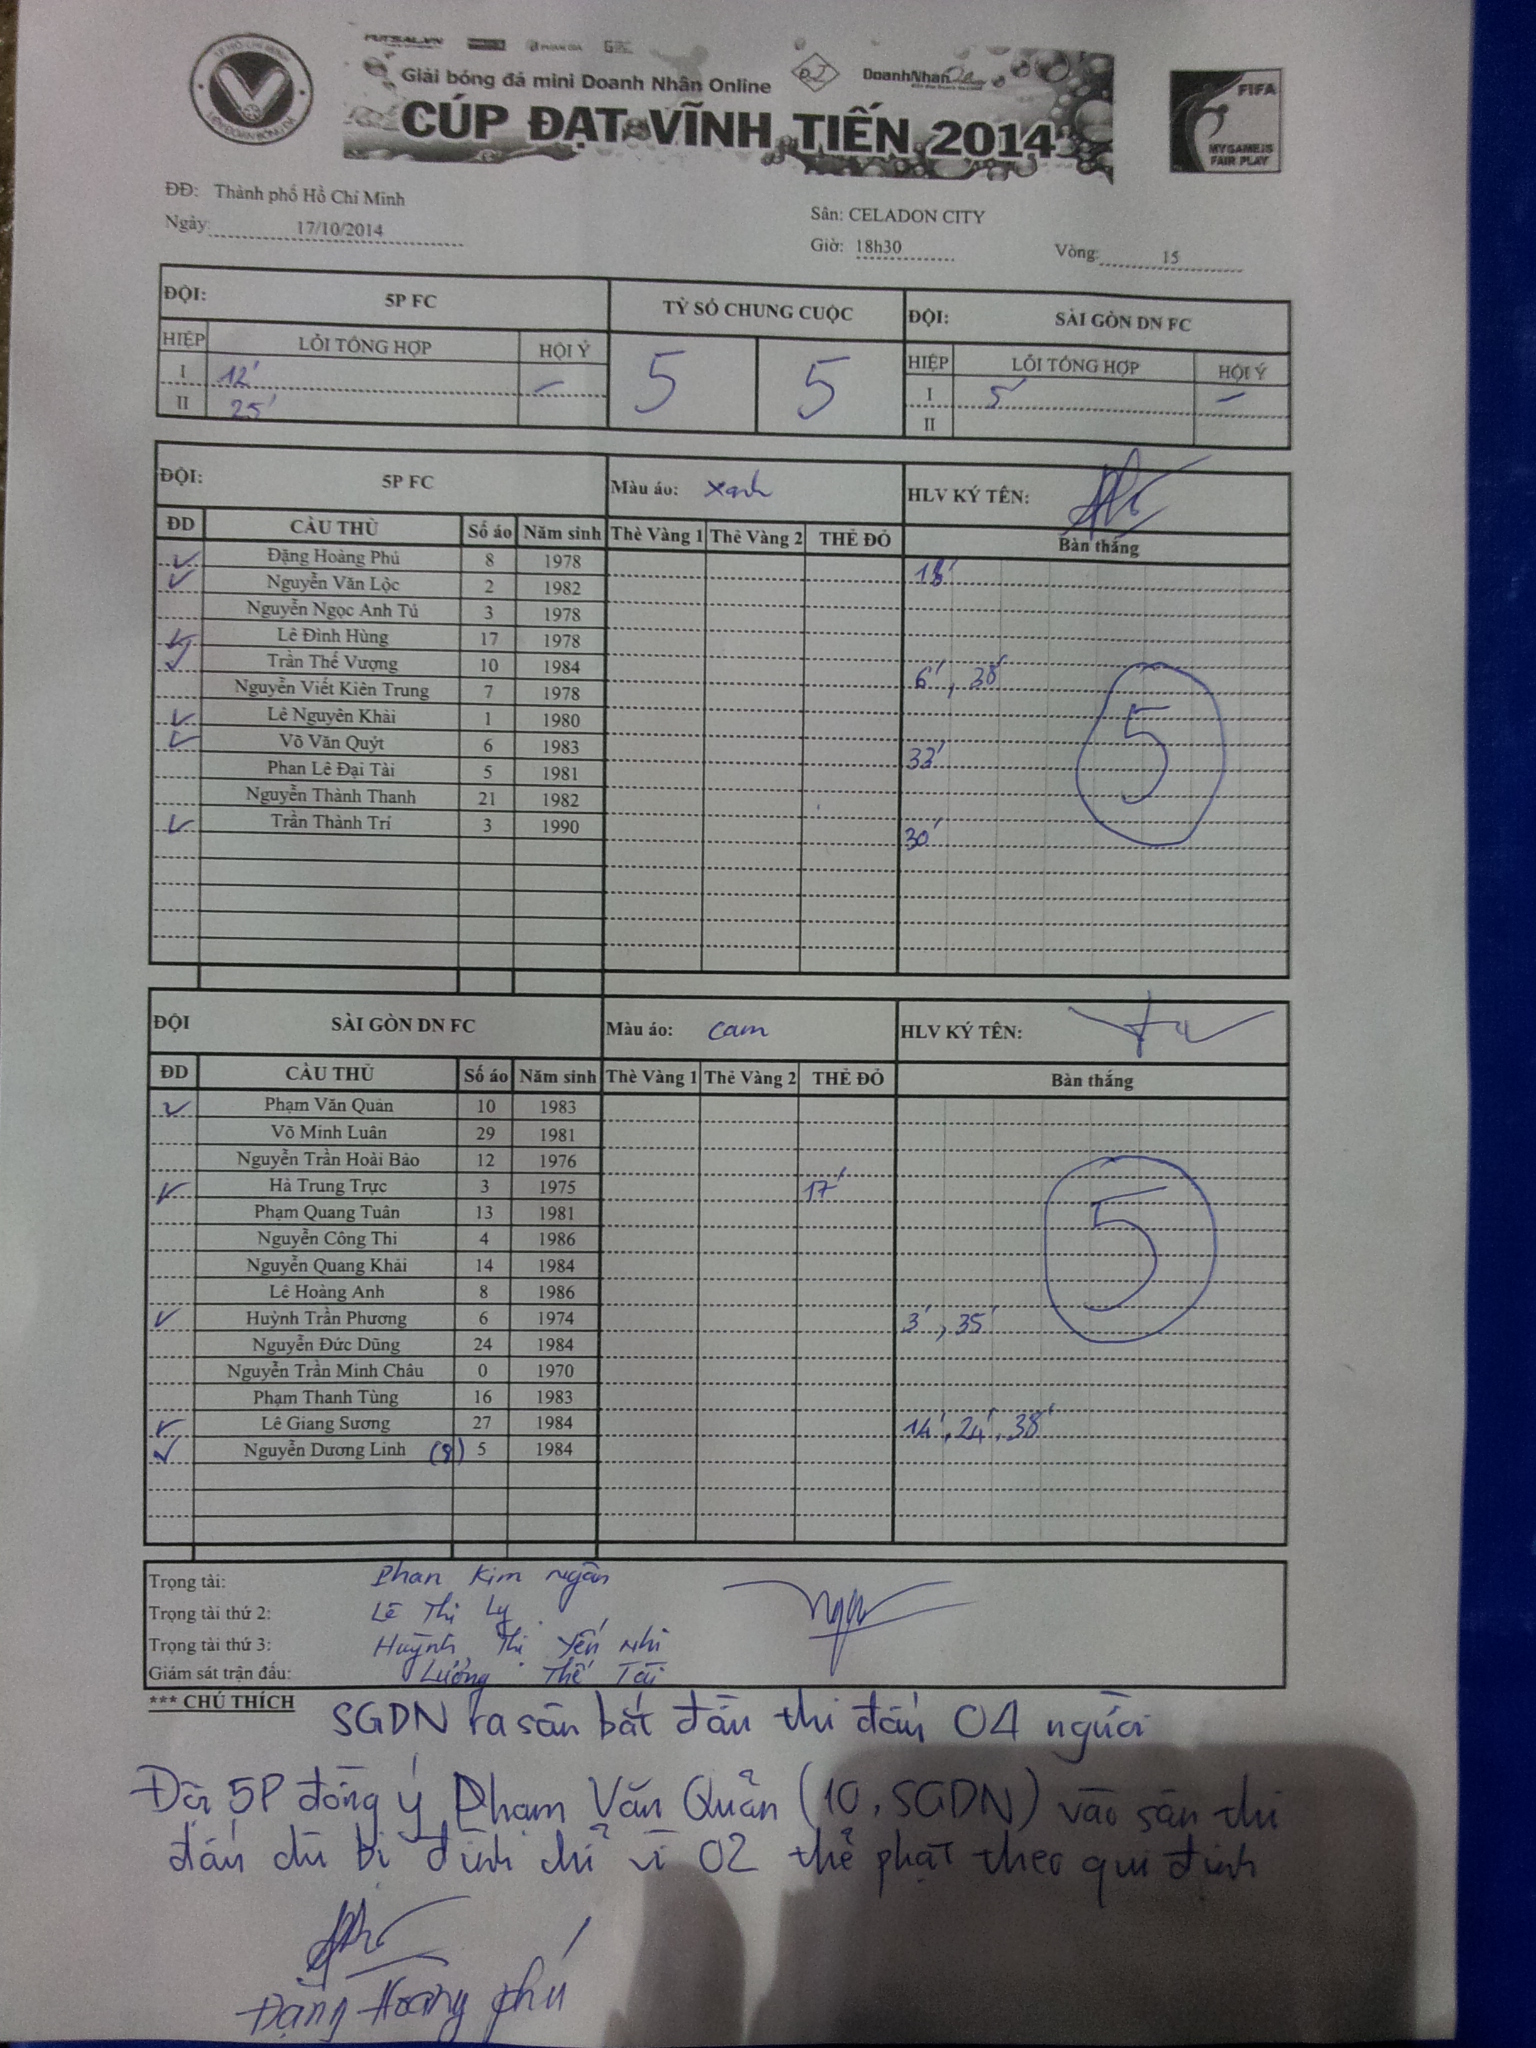 TP HỒ CHÍ MINH
LIÊN ĐOÀN BÓNG ĐÁ
FUTSAL.VN
Giải bóng đá mini Doanh Nhân Online
DoanhNhân
CÚP ĐẠT VĨNH TIẾN 2014
FIFA
MY GAME IS
FAIR PLAY
ĐĐ: Thành phố Hồ Chí Minh
Sân: CELADON CITY
Ngày: 17/10/2014
Giờ: 18h30 Vòng: 15
ĐỘI: 5P FC TỶ SỐ CHUNG CUỘC ĐỘI: SÀI GÒN DN FC
HIỆP LỖI TỔNG HỢP HỘI Ý 5 5 HIỆP LỖI TỔNG HỢP HỘI Ý
I 12' – I 5' –
II 25' II
ĐỘI: 5P FC Màu áo: xanh HLV KÝ TÊN:
ĐD CẦU THỦ Số áo Năm sinh Thẻ Vàng 1 Thẻ Vàng 2 THẺ ĐỎ Bàn thắng
Đặng Hoàng Phú 8 1978
Nguyễn Văn Lộc 2 1982
Nguyễn Ngọc Anh Tú 3 1978
Lê Đình Hùng 17 1978
Trần Thế Vượng 10 1984 6', 28'
Nguyễn Viết Kiên Trung 7 1978
Lê Nguyên Khải 1 1980
Võ Văn Quýt 6 1983 33'
Phan Lê Đại Tài 5 1981
Nguyễn Thành Thanh 21 1982
Trần Thành Trí 3 1990 30'
5
ĐỘI SÀI GÒN DN FC Màu áo: cam HLV KÝ TÊN:
ĐD CẦU THỦ Số áo Năm sinh Thẻ Vàng 1 Thẻ Vàng 2 THẺ ĐỎ Bàn thắng
Phạm Văn Quản 10 1983
Võ Minh Luân 29 1981
Nguyễn Trần Hoài Bảo 12 1976
Hà Trung Trực 3 1975 17'
Phạm Quang Tuân 13 1981
Nguyễn Công Thi 4 1986
Nguyễn Quang Khải 14 1984
Lê Hoàng Anh 8 1986
Huỳnh Trần Phương 6 1974 3', 35'
Nguyễn Đức Dũng 24 1984
Nguyễn Trần Minh Châu 0 1970
Phạm Thanh Tùng 16 1983
Lê Giang Sương 27 1984 14', 24', 38'
Nguyễn Dương Linh 5 1984
5
Trọng tài: Phan Kim Ngân
Trọng tài thứ 2: Lê Thị Ly
Trọng tài thứ 3: Huỳnh Thị Yến Nhi
Giám sát trận đấu: Lương Thế Tài
*** CHÚ THÍCH
SGDN ra sân bắt đầu thi đấu 04 người
Đội 5P đồng ý Phạm Văn Quản (10, SGDN) vào sân thi
đấu dù bị đình chỉ vì 02 thẻ phạt theo qui định
Đặng Hoàng Phú